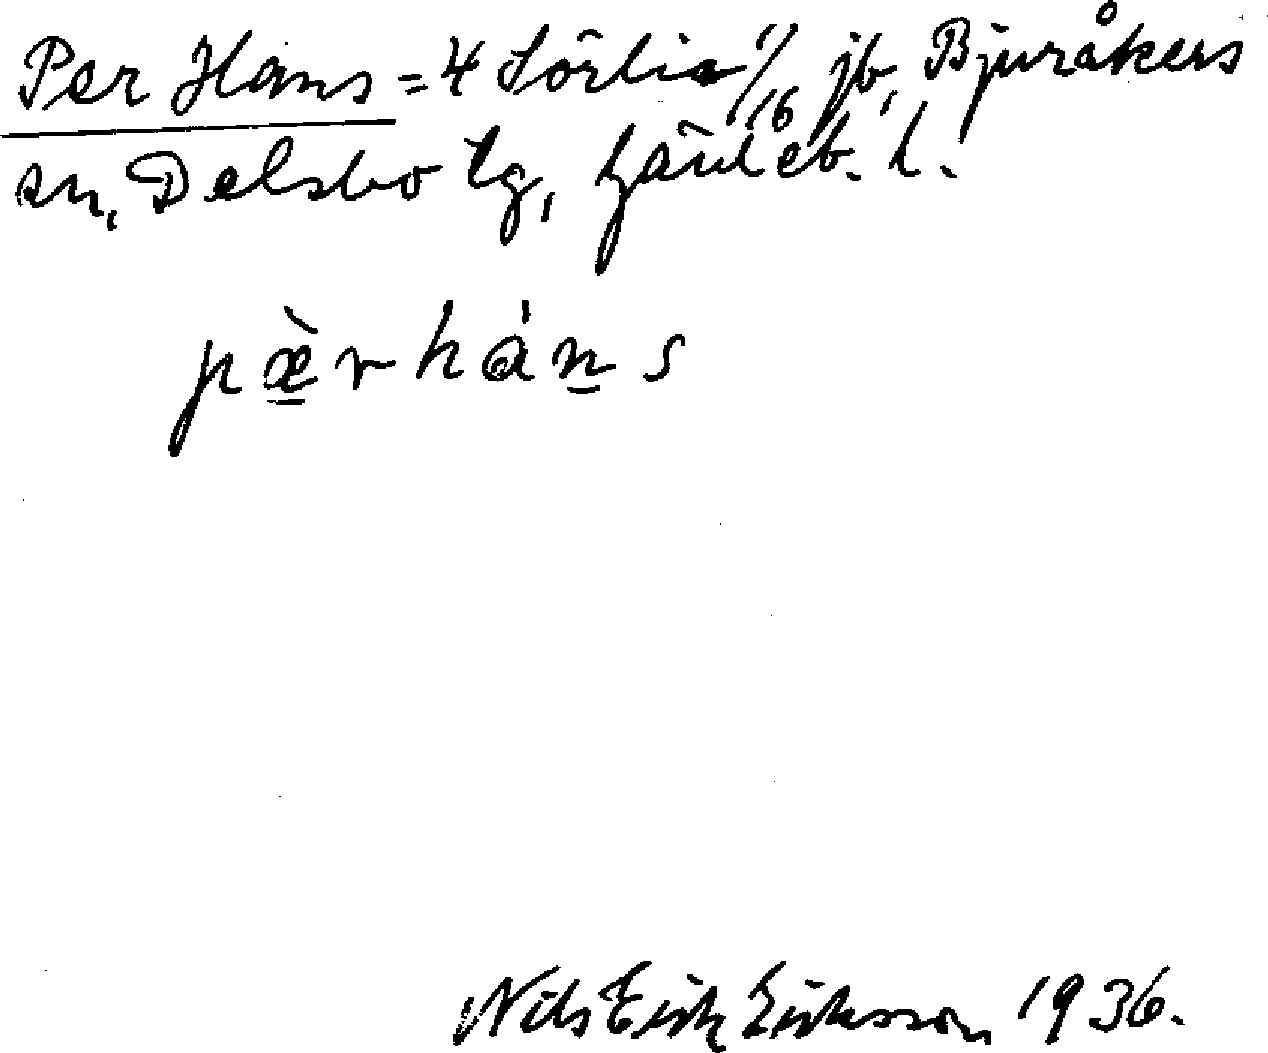 Per Hans = 4 Sörlia 1/16 jb, Bjuråkers
sn, Delsbo tg, Gävleb. l.
pæ̀rháns
Nils Erik Eriksson 1936.